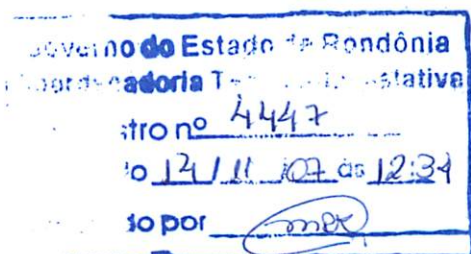 Governo do Estado de Rondônia
Coordenadoria
stro nº 4447
o 14/11/07 às 12:34
do por